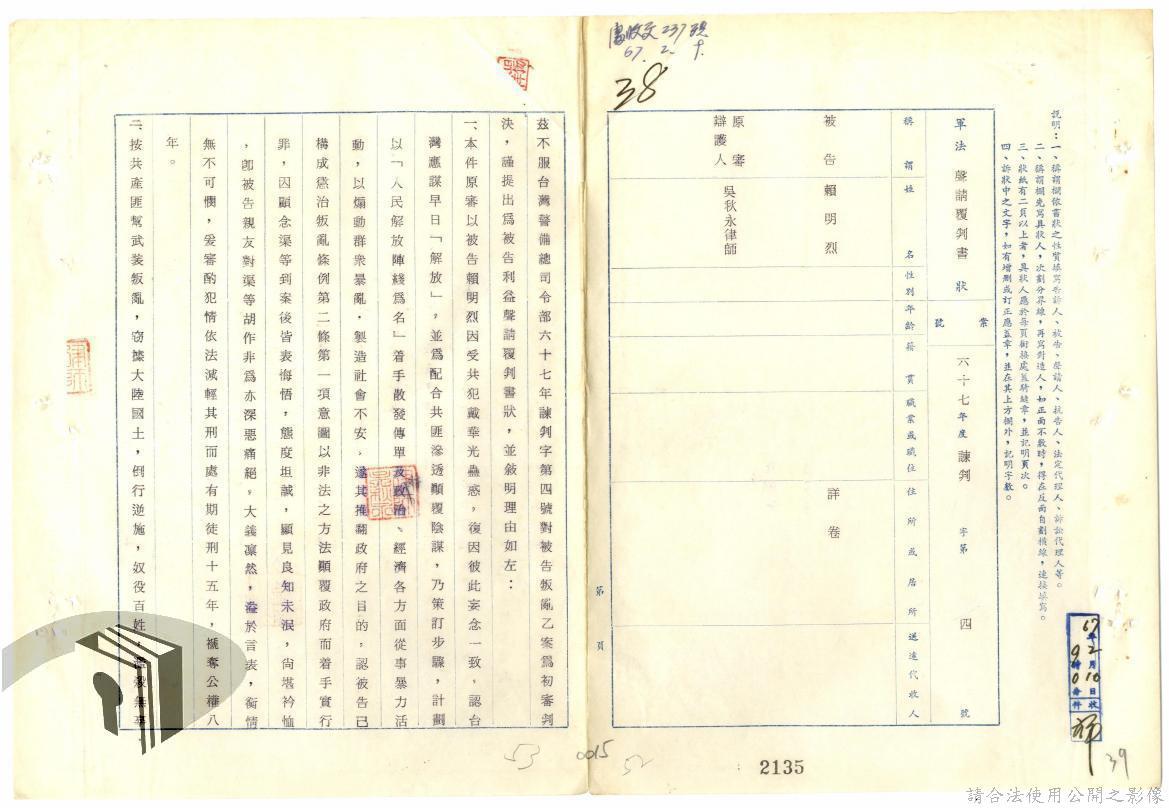 說明：一、稱謂欄依書狀之性質填寫告訴人、被告、聲請人、抗告人、法定代理人、訴訟代理人等。
二、稱謂欄先寫具狀人，次劃分界線，再寫對造人，如正面不敷時，得在反面自劃橫線，連接填寫。
三、狀紙有二頁以上者，具狀人應於每頁銜接處蓋騎縫章，並記明頁次。
四、訴狀中之文字，如有增刪或訂正應蓋章，並在其上方欄外，記明字數。
軍法 聲請覆判書 狀
案號
六十七年度諫判 字第 四 號
稱謂
姓名
性別
年齡
籍貫
職業或職位
住所或居所
送達代收人
被告 賴明烈
詳卷
原審辯護人 吳秋永律師
38
67. 2.
67年2月10日
9時0分
收件
第 頁
茲不服台灣警備總司令部六十七年諫判字第四號對被告叛亂乙案爲初審判
決，謹提出爲被告利益聲請覆判書狀，並敘明理由如左：
一、本件原審以被告賴明烈因受共犯戴華光蠱惑，復因彼此妄念一致，認台
灣應謀早日「解放」，並爲配合共匪滲透顚覆陰謀，乃策訂步驟，計劃
以「人民解放陣綫爲名」着手散發傳單及政治、經濟各方面從事暴力活
動，以煽動群衆暴亂，製造社會不安，遂其推翻政府之目的，認被告已
構成懲治叛亂條例第二條第一項意圖以非法之方法顚覆政府而着手實行
罪，因顧念渠等到案後皆表悔悟，態度坦誠，顯見良知未泯，尙堪衿恤
，卽被告親友對渠等胡作非爲亦深惡痛絕，大義凜然，溢於言表，衡情
無不可憫，爰審酌犯情依法減輕其刑而處有期徒刑十五年，褫奪公權八
年。
二、按共產匪幫武裝叛亂，窃據大陸國土，倒行逆施，奴役百姓，濫殺無辜，
53
0015
52
2135
39
請合法使用公開之影像